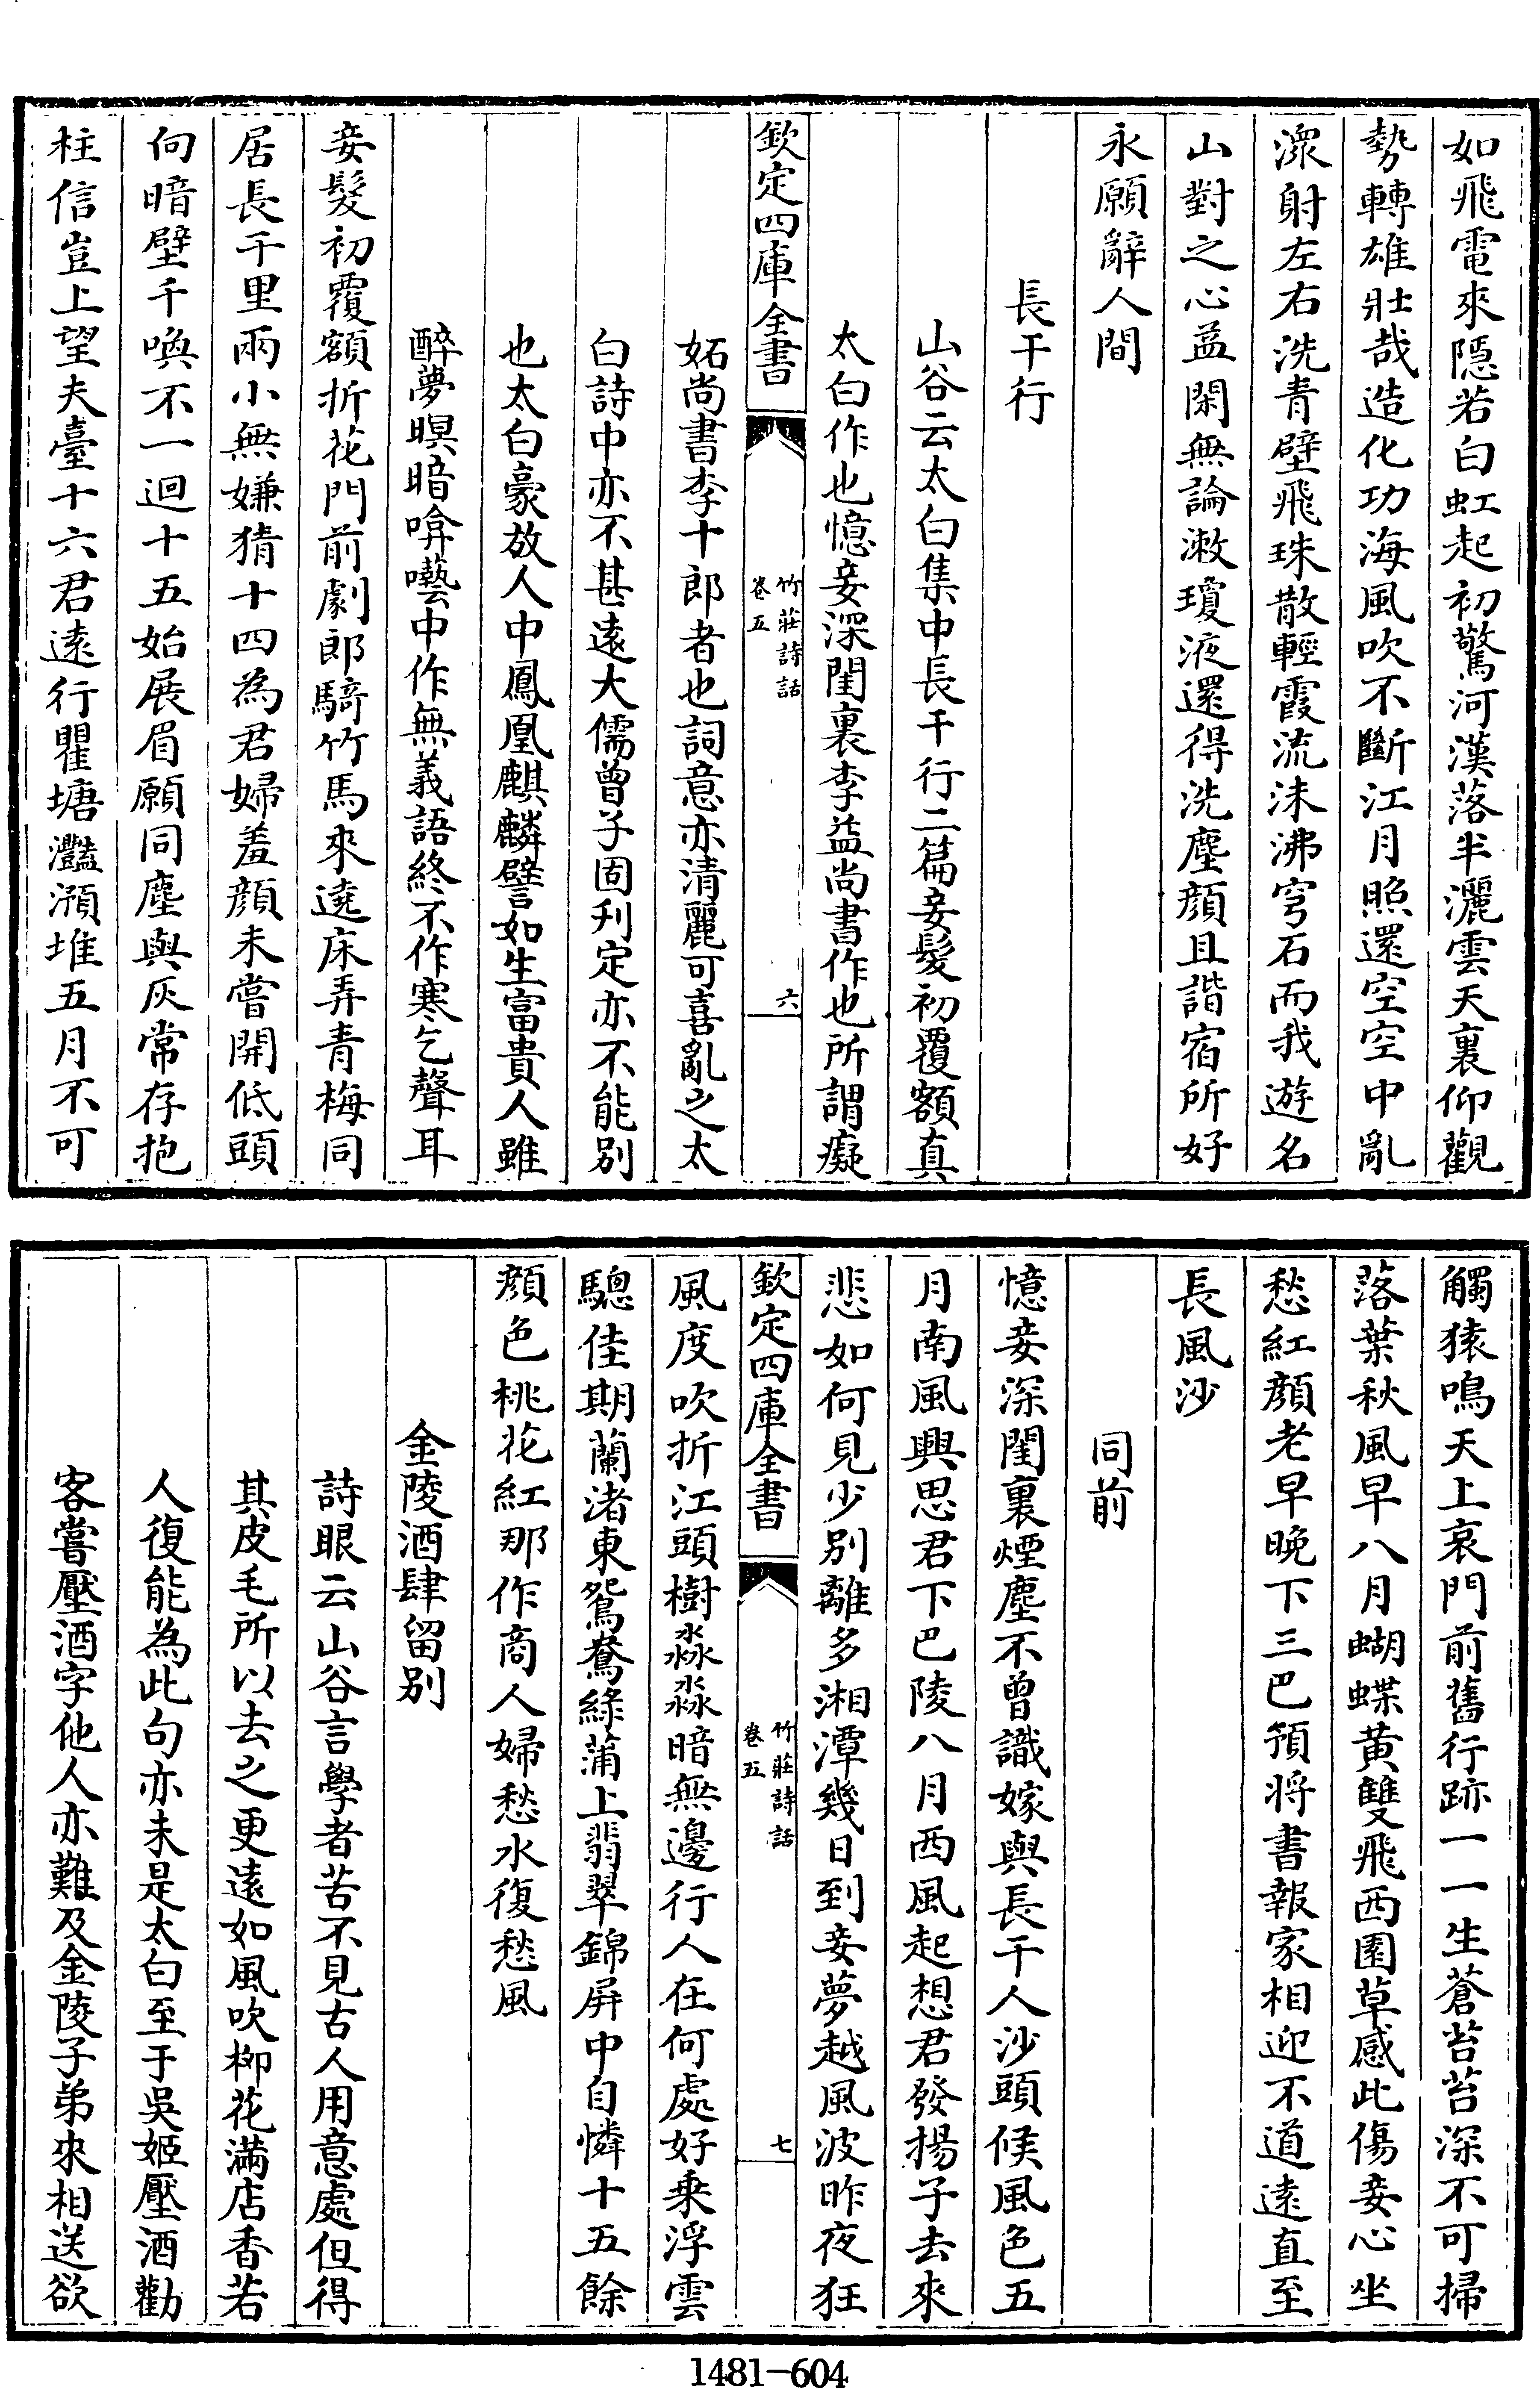 如飛電來隱若白虹起初驚河漢落半灑雲天裏仰觀
勢轉雄壯哉造化功海風吹不斷江月照還空空中亂
潈射左右洗青壁飛珠散輕霞流沫沸穹石而我遊名
山對之心益閑無論漱瓊液還得洗塵顔且諧宿所好
永願辭人間
長干行
山谷云太白集中長干行二篇妾髮初覆額真
太白作也憶妾深閨裏李益尚書作也所謂癡
欽定四庫全書
竹莊詩話
卷五
六
妬尚書李十郎者也詞意亦清麗可喜亂之太
白詩中亦不甚遠大儒曾子固刋定亦不能別
也太白豪放人中鳳凰麒麟譬如生富貴人雖
醉夢暝暗啽囈中作無義語終不作寒乞聲耳
妾髮初覆額折花門前劇郎騎竹馬來遶床弄青梅同
居長千里兩小無嫌猜十四為君婦羞顔未嘗開低頭
向暗壁千喚不一迴十五始展眉願同塵與灰常存抱
柱信豈上望夫臺十六君遠行瞿塘灩澦堆五月不可
觸猿鳴天上哀門前舊行跡一一生蒼苔苔深不可掃
落葉秋風早八月蝴蝶黄雙飛西園草感此傷妾心坐
愁紅顔老早晚下三巴預將書報家相迎不道遠直至
長風沙
同前
憶妾深閨裏煙塵不曾識嫁與長干人沙頭候風色五
月南風興思君下巴陵八月西風起想君發揚子去來
悲如何見少別離多湘潭幾日到妾夢越風波昨夜狂
欽定四庫全書
竹莊詩話
卷五
七
風度吹折江頭樹淼淼暗無邊行人在何處好乘浮雲
驄佳期蘭渚東鴛鴦綠蒲上翡翠錦屏中自憐十五餘
顔色桃花紅那作商人婦愁水復愁風
金陵酒肆留別
詩眼云山谷言學者苦不見古人用意處但得
其皮毛所以去之更遠如風吹柳花滿店香若
人復能為此句亦未是太白至于吳姬壓酒勸
客嘗壓酒字他人亦難及金陵子弟來相送欲
1481-604